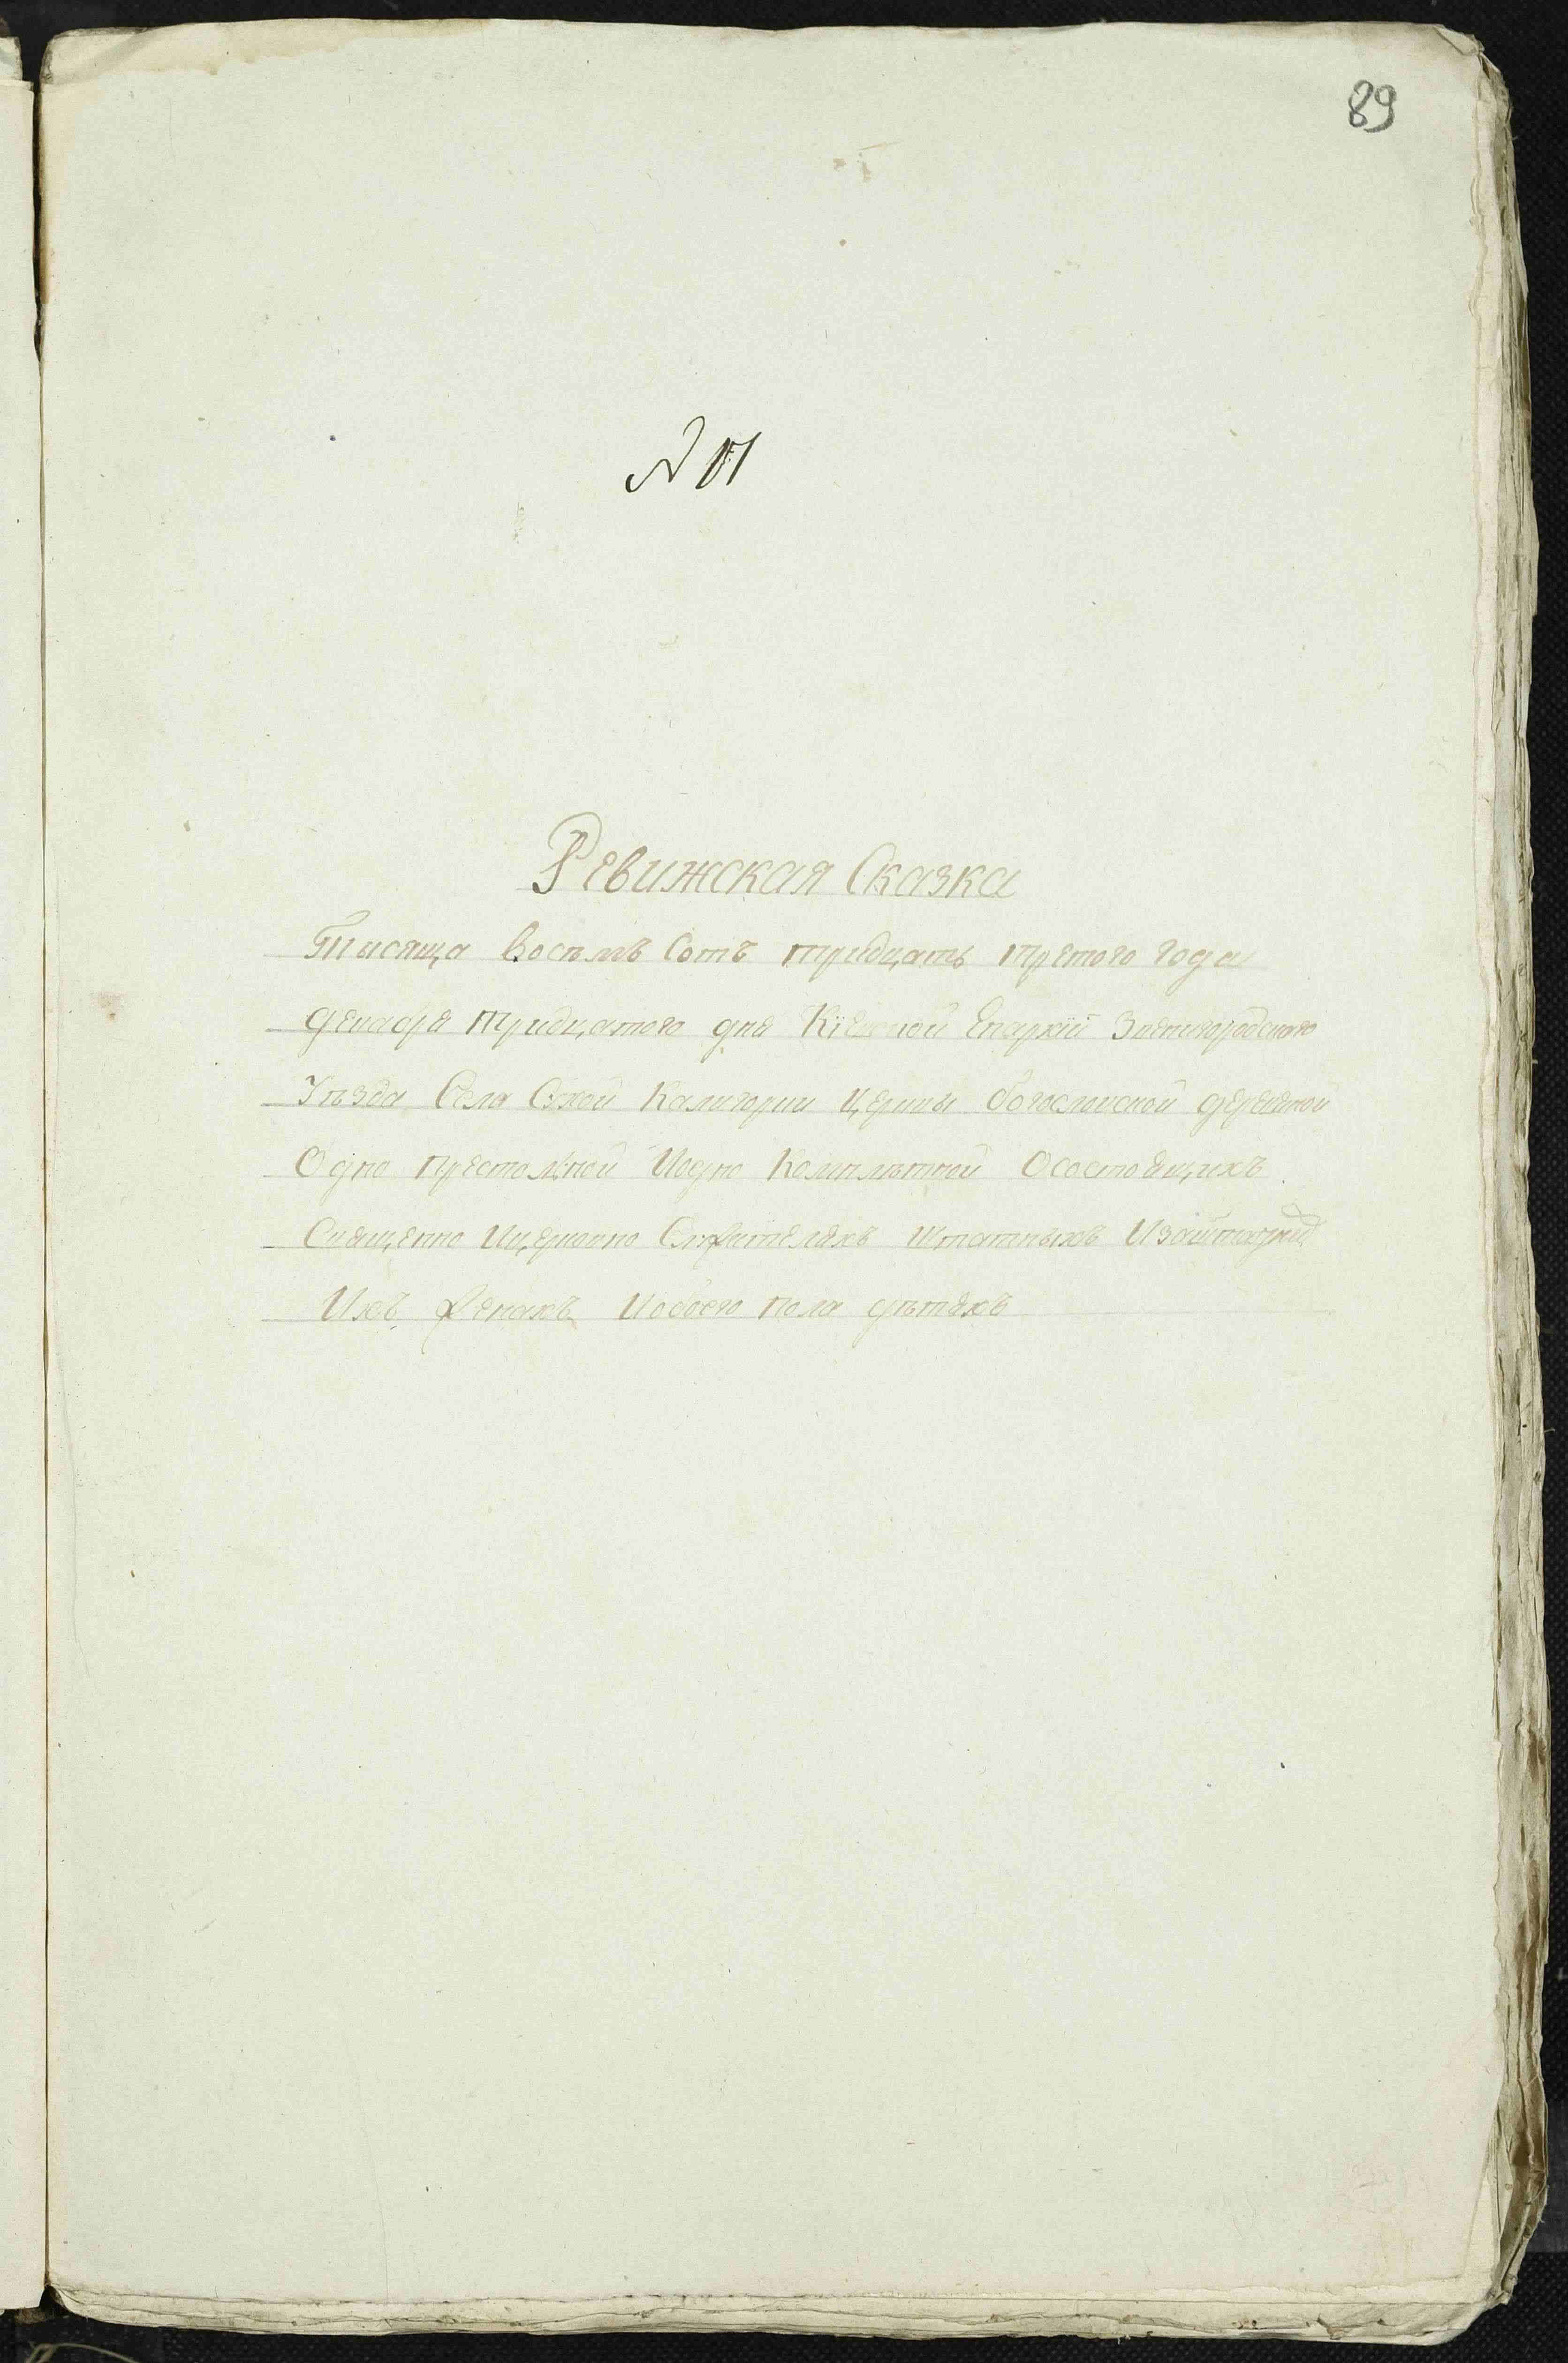 89
№
Ревижская Сказка
Тысяща восемъ Сотъ тридцать третого года
декабря тридцатого дня Кіевской Епархїи Звенигородского
Уѣзда Села Сухой Калигорки Церквы богословской деревяной
Одно престолной Иодно Комплѣтной Осостоящихъ
Священно Ицерковно Служителяхъ Штатныхъ Изаштатныхъ
Ихъ Женахъ Иобоего пола дѣтяхъ